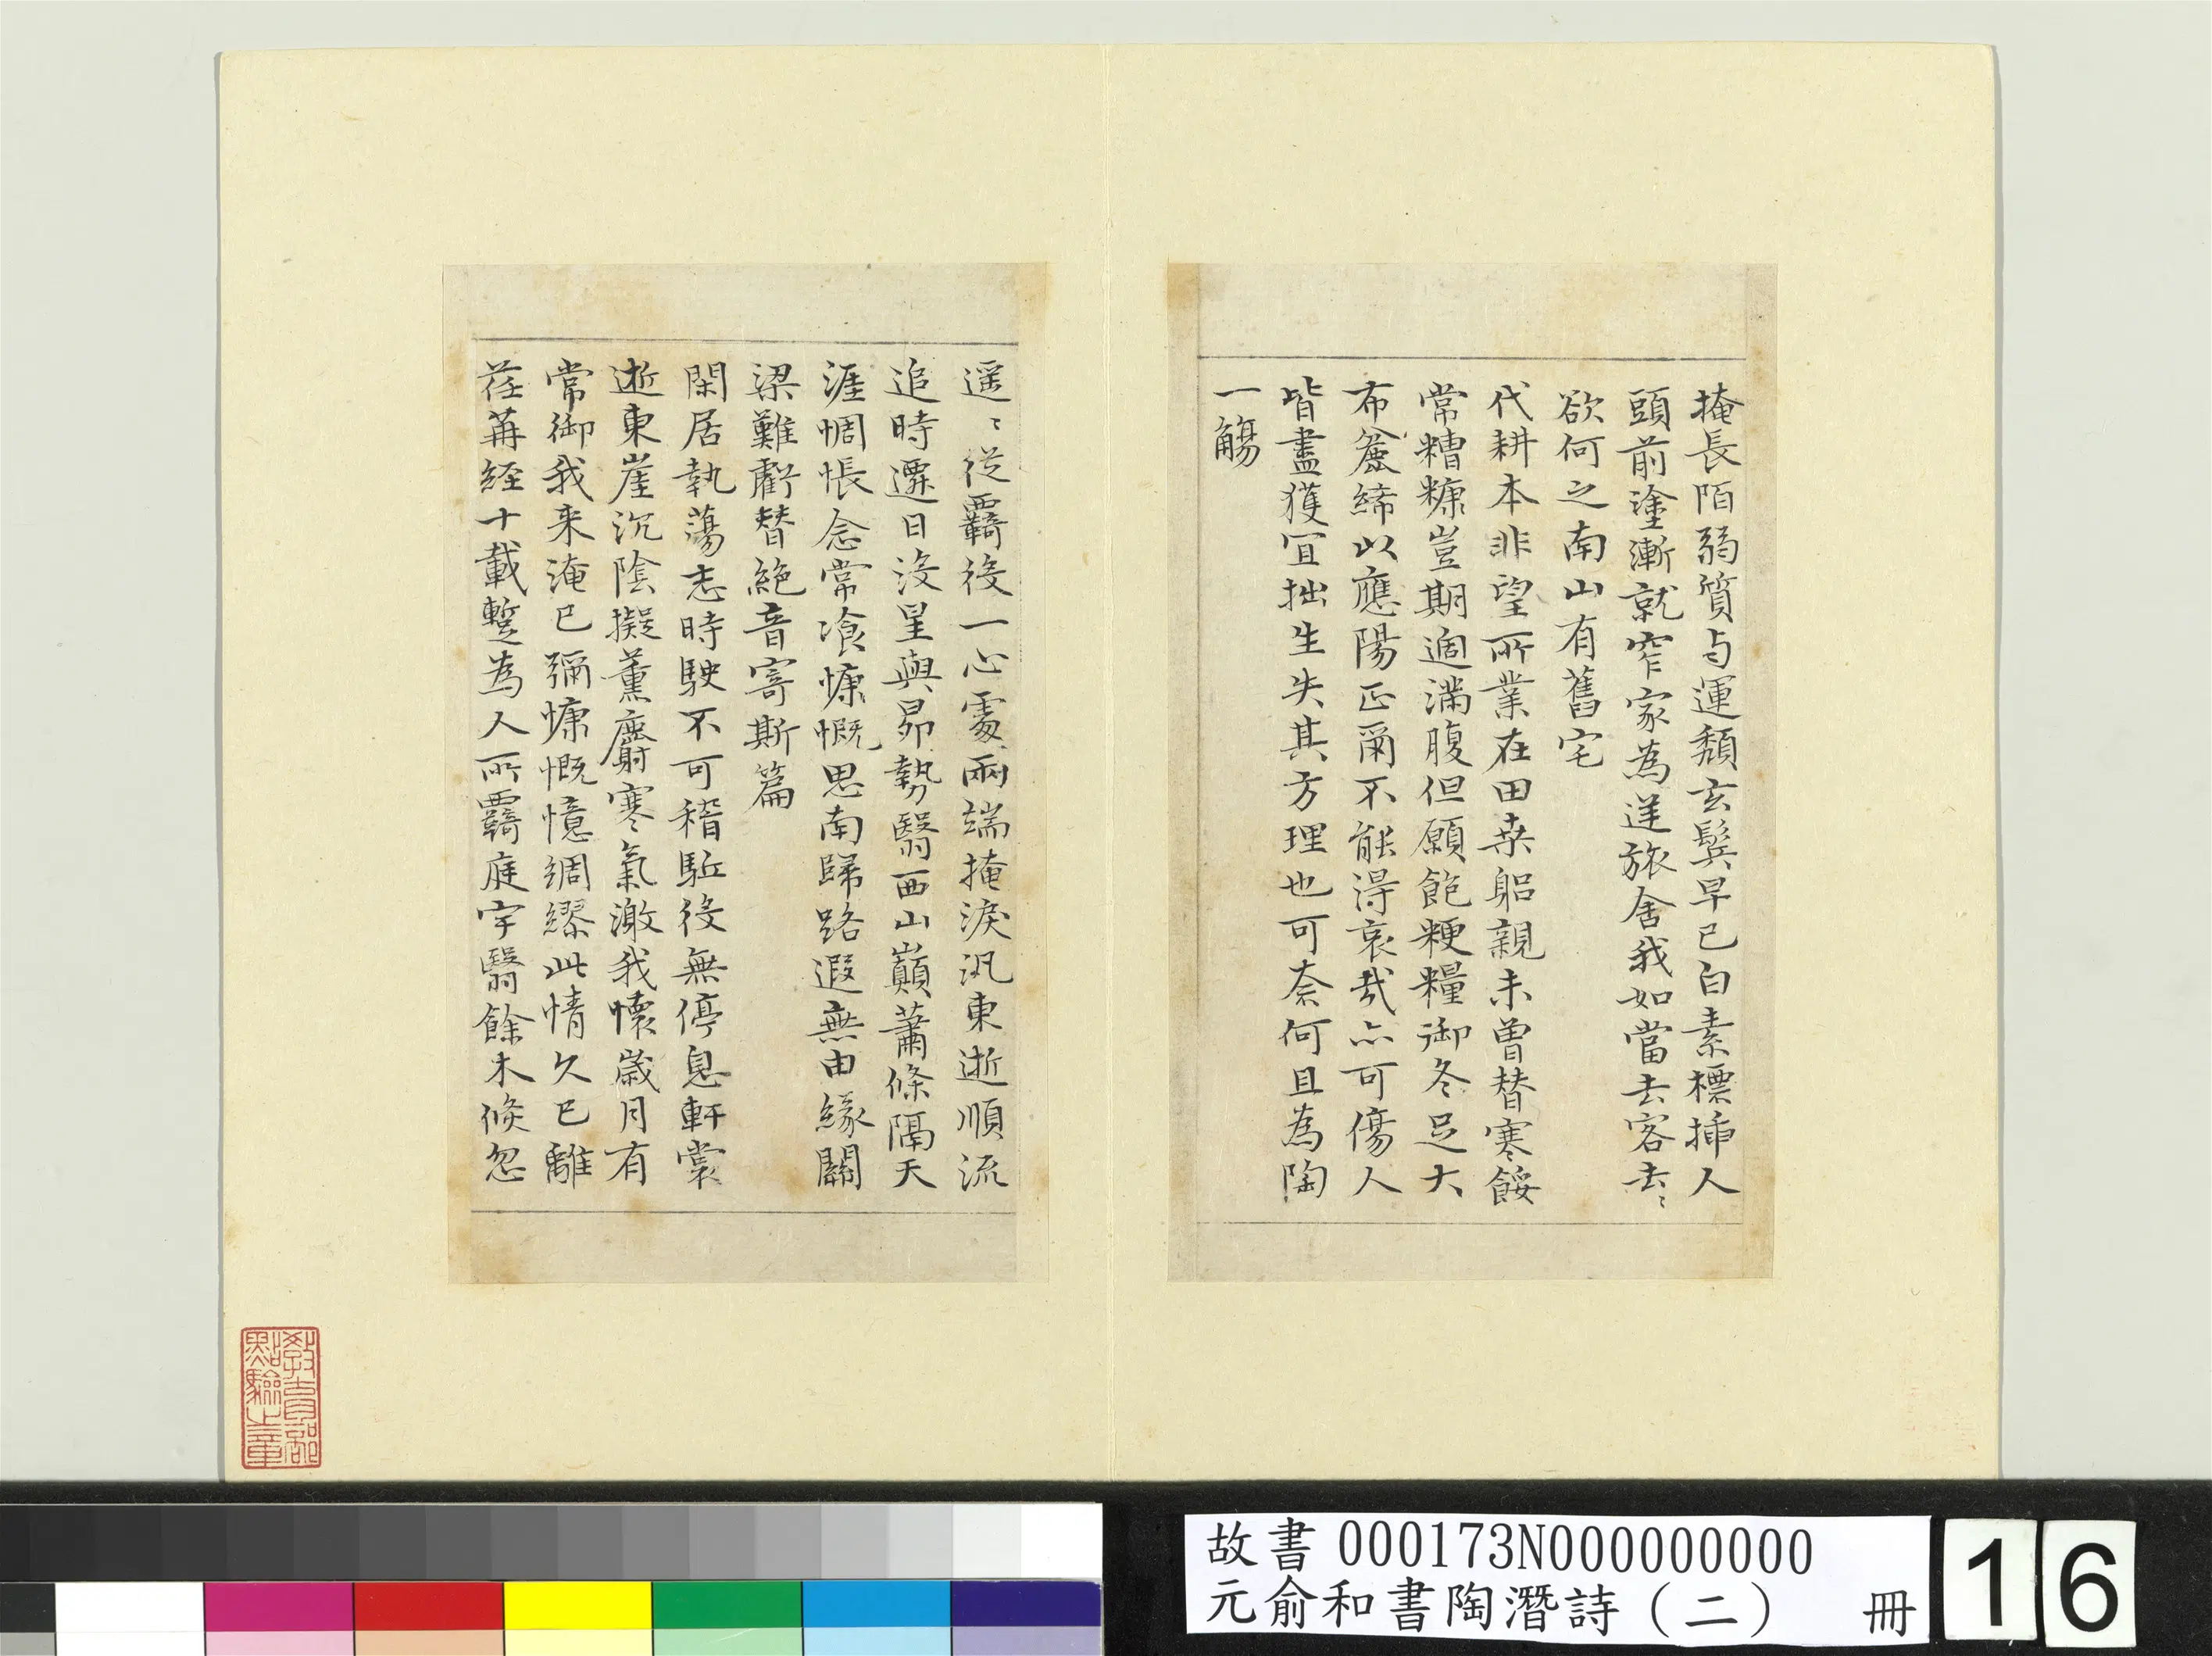 掩長陌弱質与運頹玄鬂早已白素標揷人
頭前塗漸就窄家為逆旅舍我如當去客去〻
欲何之南山有舊宅
代耕本非望所業在田桒躳親未曾替寒餒
常糟糠豈期過滿腹但願飽粳糧御冬足大
布麄絺以應陽正爾不能得哀哉亦可傷人
皆盡獲冝拙生失其方理也可柰何且為陶
一觴
遥〻從覊役一心處兩端掩淚汎東逝順流
追時遷日沒星與昴勢翳西山巔蕭條隔天
涯惆悵念常飡慷慨思南歸路遐無由緣關
梁難虧替絶音寄斯篇
閑居執蕩志時駛不可稽駈役無停息軒裳
逝東崖沉陰擬薰麝寒氣激我懷歲月有
常御我来淹已彌慷慨憶綢繆此情久已離
荏苒経十載暫為人所覊庭宇翳餘木倐忽
教育部點驗之章
故書 000173N000000000
元俞和書陶潛詩（二） 冊
16